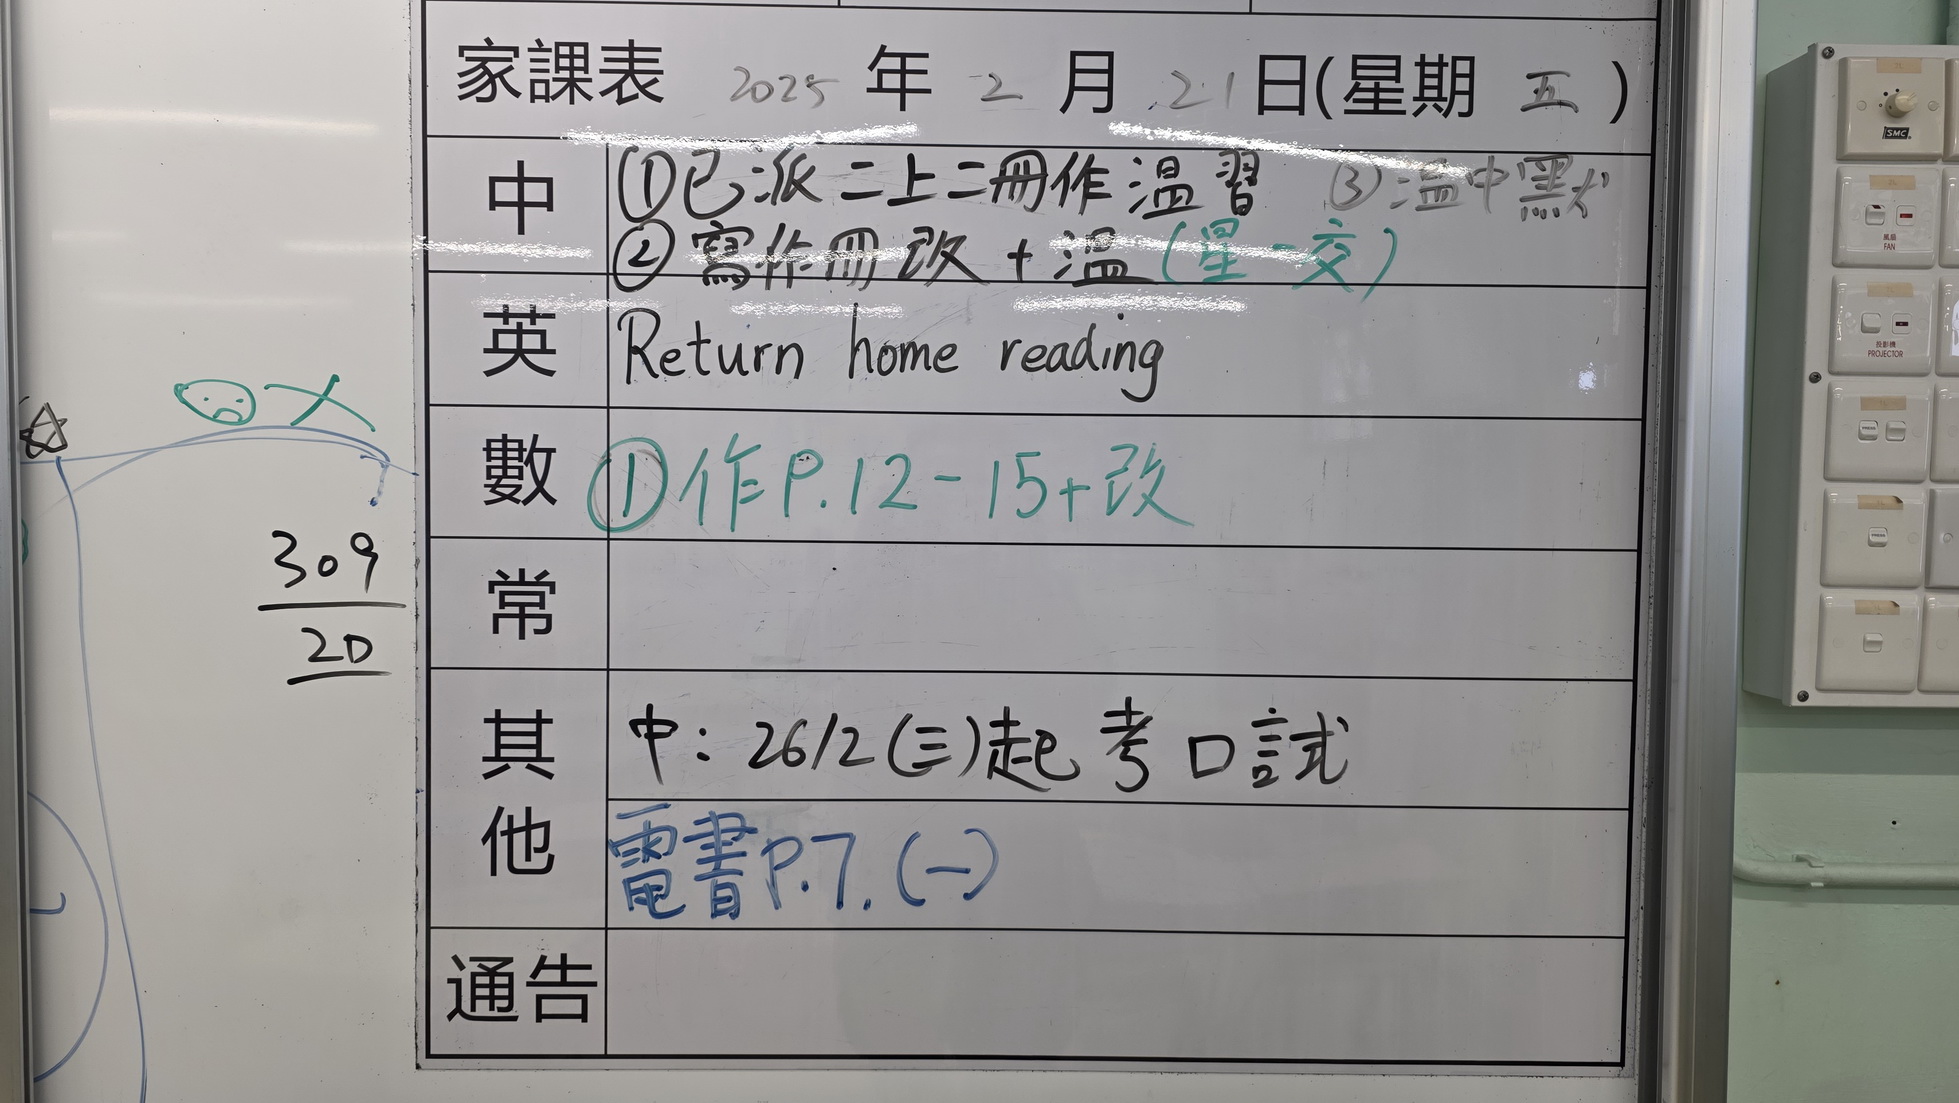 家課表 2025 年 2 月 21 日(星期 五 )
中
①已派二上二冊作溫習 ③溫中默
②寫作冊改+溫(星一交)
英
Return home reading
數
①作P.12-15+改
常
其他
中：26/2(三)起考口試
電書P.7.(一)
通告
309
20
SMC
風扇
FAN
投影機
PROJECTOR